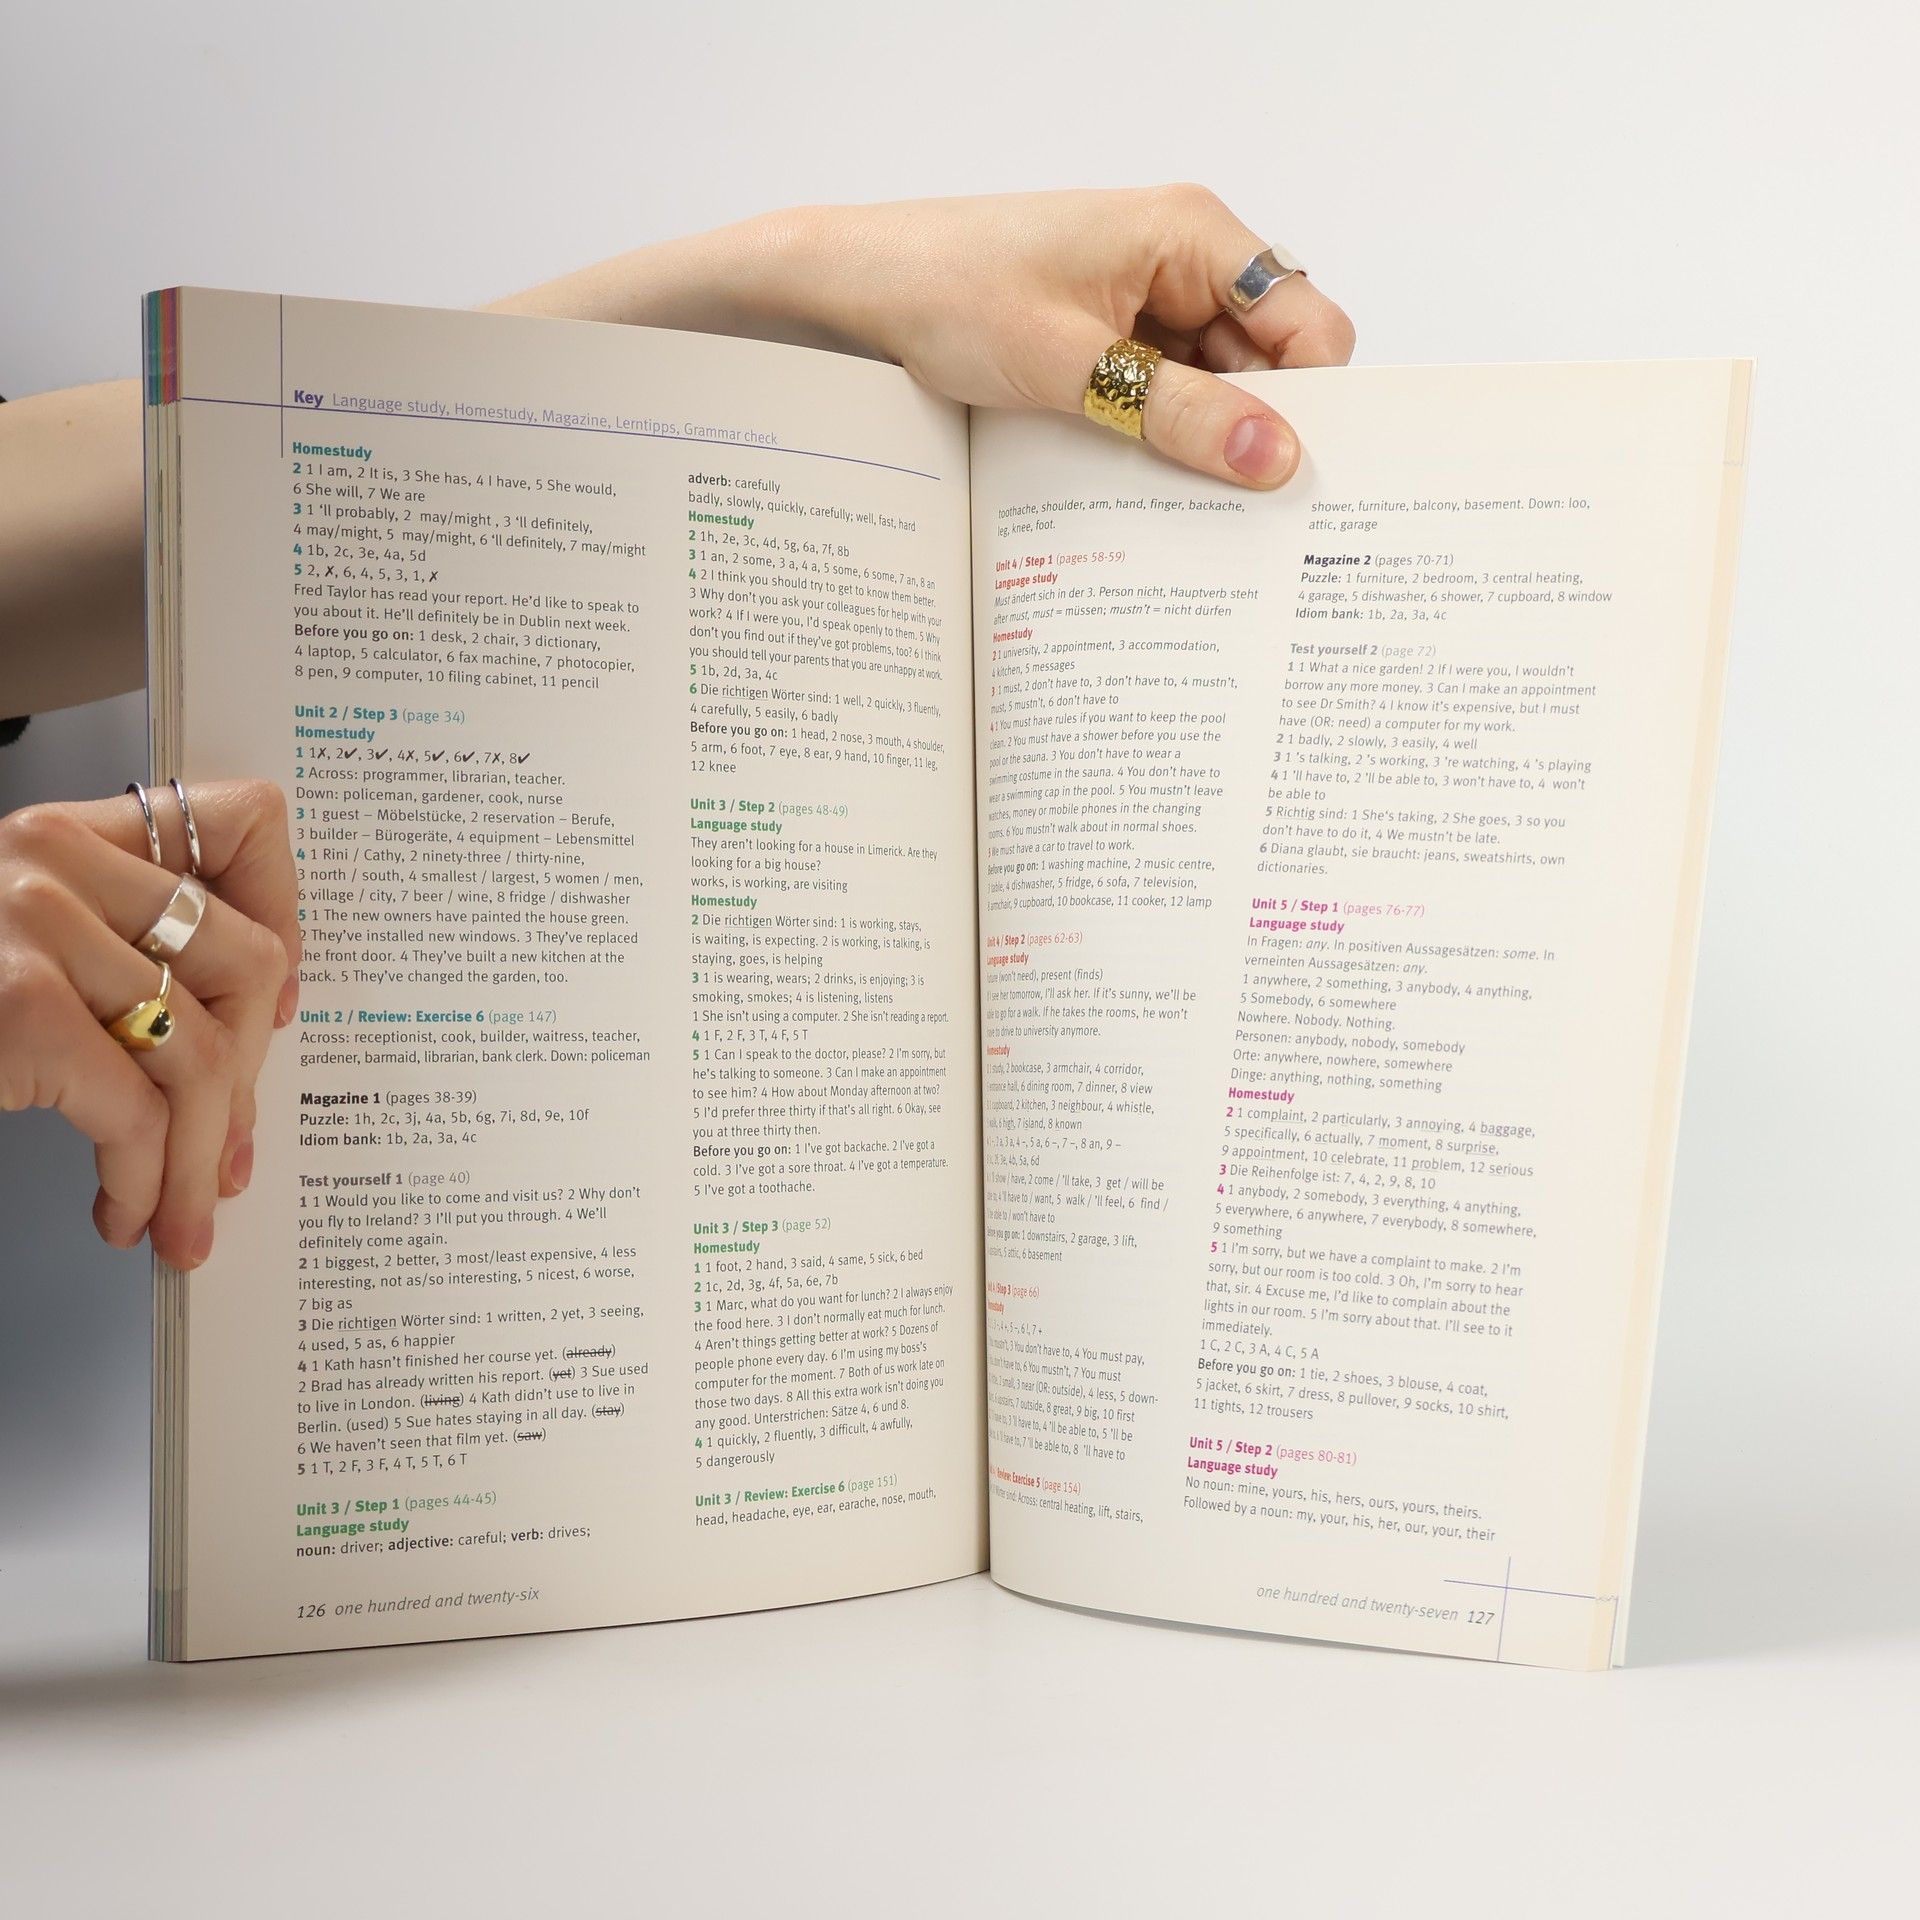 Key Language study, Homestudy, Magazine, Lerntipps, Grammar check
Homestudy
2 1 I am, 2 It is, 3 She has, 4 I have, 5 She would,
6 She will, 7 We are
3 1 ‘ll probably, 2 may/might , 3 ‘ll definitely,
4 may/might, 5 may/might, 6 ‘ll definitely, 7 may/might
4 1b, 2c, 3e, 4a, 5d
5 2, ✗, 6, 4, 5, 3, 1, ✗
Fred Taylor has read your report. He’d like to speak to
you about it. He’ll definitely be in Dublin next week.
Before you go on: 1 desk, 2 chair, 3 dictionary,
4 laptop, 5 calculator, 6 fax machine, 7 photocopier,
8 pen, 9 computer, 10 filing cabinet, 11 pencil
Unit 2 / Step 3 (page 34)
Homestudy
1 1✗, 2✔, 3✔, 4✗, 5✔, 6✔, 7✗, 8✔
2 Across: programmer, librarian, teacher.
Down: policeman, gardener, cook, nurse
3 1 guest – Möbelstücke, 2 reservation – Berufe,
3 builder – Bürogeräte, 4 equipment – Lebensmittel
4 1 Rini / Cathy, 2 ninety-three / thirty-nine,
3 north / south, 4 smallest / largest, 5 women / men,
6 village / city, 7 beer / wine, 8 fridge / dishwasher
5 1 The new owners have painted the house green.
2 They’ve installed new windows. 3 They’ve replaced
the front door. 4 They’ve built a new kitchen at the
back. 5 They’ve changed the garden, too.
Unit 2 / Review: Exercise 6 (page 147)
Across: receptionist, cook, builder, waitress, teacher,
gardener, barmaid, librarian, bank clerk. Down: policeman
Magazine 1 (pages 38-39)
Puzzle: 1h, 2c, 3j, 4a, 5b, 6g, 7i, 8d, 9e, 10f
Idiom bank: 1b, 2a, 3a, 4c
Test yourself 1 (page 40)
1 1 Would you like to come and visit us? 2 Why don’t
you fly to Ireland? 3 I’ll put you through. 4 We’ll
definitely come again.
2 1 biggest, 2 better, 3 most/least expensive, 4 less
interesting, not as/so interesting, 5 nicest, 6 worse,
7 big as
3 Die richtigen Wörter sind: 1 written, 2 yet, 3 seeing,
4 used, 5 as, 6 happier
4 1 Kath hasn’t finished her course yet. (already)
2 Brad has already written his report. (yet) 3 Sue used
to live in London. (living) 4 Kath didn’t use to live in
Berlin. (used) 5 Sue hates staying in all day. (stay)
6 We haven’t seen that film yet. (saw)
5 1 T, 2 F, 3 F, 4 T, 5 T, 6 T
Unit 3 / Step 1 (pages 44-45)
Language study
noun: driver; adjective: careful; verb: drives;
126 one hundred and twenty-six
adverb: carefully
badly, slowly, quickly, carefully; well, fast, hard
Homestudy
2 1h, 2e, 3c, 4d, 5g, 6a, 7f, 8b
3 1 an, 2 some, 3 a, 4 a, 5 some, 6 some, 7 an, 8 an
4 2 I think you should try to get to know them better.
3 Why don’t you ask your colleagues for help with your
work? 4 If I were you, I’d speak openly to them. 5 Why
don’t you find out if they’ve got problems, too? 6 I think
you should tell your parents that you are unhappy at work.
5 1b, 2d, 3a, 4c
6 Die richtigen Wörter sind: 1 well, 2 quickly, 3 fluently,
4 carefully, 5 easily, 6 badly
Before you go on: 1 head, 2 nose, 3 mouth, 4 shoulder,
5 arm, 6 foot, 7 eye, 8 ear, 9 hand, 10 finger, 11 leg,
12 knee
Unit 3 / Step 2 (pages 48-49)
Language study
They aren’t looking for a house in Limerick. Are they
looking for a big house?
works, is working, are visiting
Homestudy
2 Die richtigen Wörter sind: 1 is working, stays,
is waiting, is expecting. 2 is working, is talking, is
staying, goes, is helping
3 1 is wearing, wears; 2 drinks, is enjoying; 3 is
smoking, smokes; 4 is listening, listens
1 She isn’t using a computer. 2 She isn’t reading a report.
4 1 F, 2 F, 3 T, 4 F, 5 T
5 1 Can I speak to the doctor, please? 2 I’m sorry, but
he’s talking to someone. 3 Can I make an appointment
to see him? 4 How about Monday afternoon at two?
5 I’d prefer three thirty if that’s all right. 6 Okay, see
you at three thirty then.
Before you go on: 1 I’ve got backache. 2 I’ve got a
cold. 3 I’ve got a sore throat. 4 I’ve got a temperature.
5 I’ve got a toothache.
Unit 3 / Step 3 (page 52)
Homestudy
1 1 foot, 2 hand, 3 said, 4 same, 5 sick, 6 bed
2 1c, 2d, 3g, 4f, 5a, 6e, 7b
3 1 Marc, what do you want for lunch? 2 I always enjoy
the food here. 3 I don’t normally eat much for lunch.
4 Aren’t things getting better at work? 5 Dozens of
people phone every day. 6 I’m using my boss’s
computer for the moment. 7 Both of us work late on
those two days. 8 All this extra work isn’t doing you
any good. Unterstrichen: Sätze 4, 6 und 8.
4 1 quickly, 2 fluently, 3 difficult, 4 awfully,
5 dangerously
Unit 3 / Review: Exercise 6 (page 151)
head, headache, eye, ear, earache, nose, mouth,
toothache, shoulder, arm, hand, finger, backache,
leg, knee, foot.
Unit 4 / Step 1 (pages 58-59)
Language study
Must ändert sich in der 3. Person nicht, Hauptverb steht
after must, must = müssen; mustn’t = nicht dürfen
Homestudy
2 1 university, 2 appointment, 3 accommodation,
4 kitchen, 5 messages
3 1 must, 2 don’t have to, 3 don’t have to, 4 mustn’t,
must, 5 mustn’t, 6 don’t have to
4 1 You must have rules if you want to keep the pool
clean. 2 You must have a shower before you use the
pool or the sauna. 3 You don’t have to wear a
swimming costume in the sauna. 4 You don’t have to
wear a swimming cap in the pool. 5 You mustn’t leave
watches, money or mobile phones in the changing
rooms. 6 You mustn’t walk about in normal shoes.
We must have a car to travel to work.
Before you go on: 1 washing machine, 2 music centre,
3 table, 4 dishwasher, 5 fridge, 6 sofa, 7 television,
8 armchair, 9 cupboard, 10 bookcase, 11 cooker, 12 lamp
Unit 4 / Step 2 (pages 62-63)
Language study
future (won’t need), present (finds)
see her tomorrow, I’ll ask her. If it’s sunny, we’ll be
able to go for a walk. If he takes the rooms, he won’t
have to drive to university anymore.
Homestudy
study, 2 bookcase, 3 armchair, 4 corridor,
entrance hall, 6 dining room, 7 dinner, 8 view
cupboard, 2 kitchen, 3 neighbour, 4 whistle,
walk, 6 high, 7 island, 8 known
2 a, 3 a, 4 –, 5 a, 6 –, 7 –, 8 an, 9 –
2f, 3e, 4b, 5a, 6d
show / have, 2 come / ’ll take, 3 get / will be
’ll have to / want, 5 walk / ’ll feel, 6 find /
be able to / won’t have to
Before you go on: 1 downstairs, 2 garage, 3 lift,
upstairs, 5 attic, 6 basement
Step 3 (page 66)
Homestudy
4 +, 5 –, 6 !, 7 +
mustn’t, 3 You don’t have to, 4 You must pay,
don’t have to, 6 You mustn’t, 7 You must
2 small, 3 near (OR: outside), 4 less, 5 down-
upstairs, 7 outside, 8 great, 9 big, 10 first
have to, 3 ’ll have to, 4 ’ll be able to, 5 ’ll be
’ll have to, 7 ’ll be able to, 8 ’ll have to
Review: Exercise 5 (page 154)
Wörter sind: Across: central heating, lift, stairs,
shower, furniture, balcony, basement. Down: loo,
attic, garage
Magazine 2 (pages 70-71)
Puzzle: 1 furniture, 2 bedroom, 3 central heating,
4 garage, 5 dishwasher, 6 shower, 7 cupboard, 8 window
Idiom bank: 1b, 2a, 3a, 4c
Test yourself 2 (page 72)
1 1 What a nice garden! 2 If I were you, I wouldn’t
borrow any more money. 3 Can I make an appointment
to see Dr Smith? 4 I know it’s expensive, but I must
have (OR: need) a computer for my work.
2 1 badly, 2 slowly, 3 easily, 4 well
3 1 ’s talking, 2 ’s working, 3 ’re watching, 4 ’s playing
4 1 ’ll have to, 2 ’ll be able to, 3 won’t have to, 4 won’t
be able to
5 Richtig sind: 1 She’s taking, 2 She goes, 3 so you
don’t have to do it, 4 We mustn’t be late.
6 Diana glaubt, sie braucht: jeans, sweatshirts, own
dictionaries.
Unit 5 / Step 1 (pages 76-77)
Language study
In Fragen: any. In positiven Aussagesätzen: some. In
verneinten Aussagesätzen: any.
1 anywhere, 2 something, 3 anybody, 4 anything,
5 Somebody, 6 somewhere
Nowhere. Nobody. Nothing.
Personen: anybody, nobody, somebody
Orte: anywhere, nowhere, somewhere
Dinge: anything, nothing, something
Homestudy
2 1 complaint, 2 particularly, 3 annoying, 4 baggage,
5 specifically, 6 actually, 7 moment, 8 surprise,
9 appointment, 10 celebrate, 11 problem, 12 serious
3 Die Reihenfolge ist: 7, 4, 2, 9, 8, 10
4 1 anybody, 2 somebody, 3 everything, 4 anything,
5 everywhere, 6 anywhere, 7 everybody, 8 somewhere,
9 something
5 1 I’m sorry, but we have a complaint to make. 2 I’m
sorry, but our room is too cold. 3 Oh, I’m sorry to hear
that, sir. 4 Excuse me, I’d like to complain about the
lights in our room. 5 I’m sorry about that. I’ll see to it
immediately.
1 C, 2 C, 3 A, 4 C, 5 A
Before you go on: 1 tie, 2 shoes, 3 blouse, 4 coat,
5 jacket, 6 skirt, 7 dress, 8 pullover, 9 socks, 10 shirt,
11 tights, 12 trousers
Unit 5 / Step 2 (pages 80-81)
Language study
No noun: mine, yours, his, hers, ours, yours, theirs.
Followed by a noun: my, your, his, her, our, your, their
one hundred and twenty-seven 127